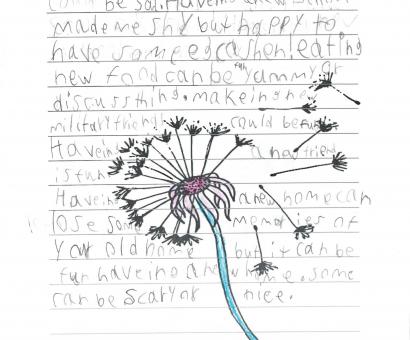 could be sad. Haveing a new school
made me shy but happy to
have some egcashen! eating
new food can be fun yummy or
discussthing. makeing new
military friend could be fun
Haveing a nad friend
is fun
Haveing a new home can
lose some memories of
your old home but it can be
fun haveing a new home. some
can be scary or nice.